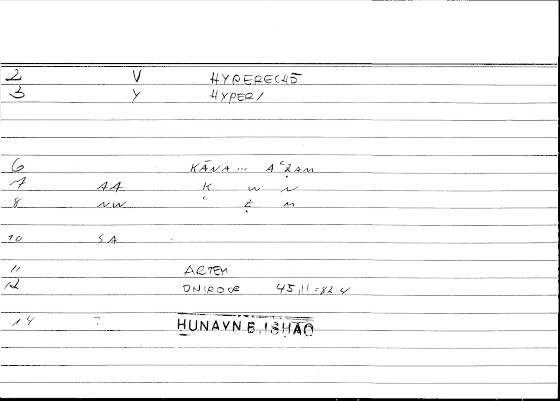 2 V HYPERECHŌ
3 Y HYPER/
6 KĀNA...
7 AA K W N
8 NW
10 SA
11 ARTEM
12 ONIROCR 45,11=82
14 ? HUNAYN B. ISHAQ